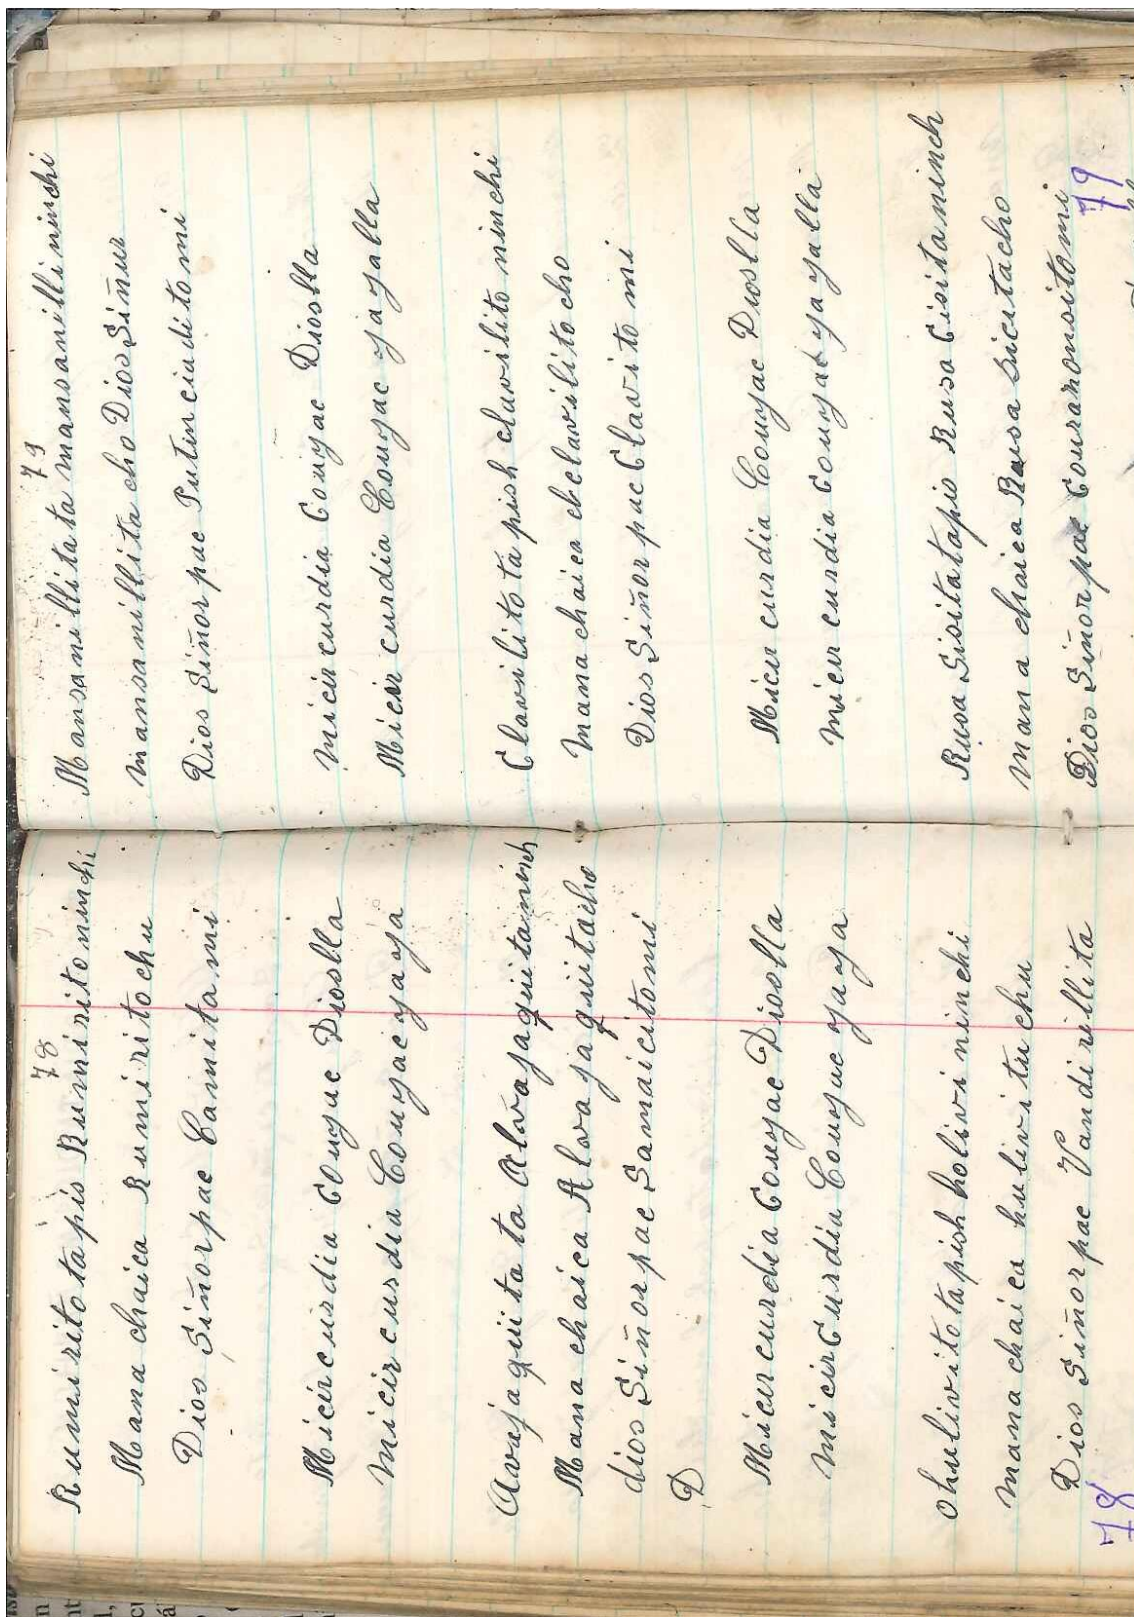 78
Rumiritotapis Rumiritoninchi
Mana chaica Rumiritochu
Dios Siñorpac Camitami
Micircurdia Conyac Dioslla
Micircurdia Conyac yaya
Mana chaica Alavajaquitacho
dios Siñorpac Samaicitomi
D
Micircurdia Conyac Dioslla
Micircurdia Conyac yaya
mana chaica hulivituchu
Dios Siñorpac Vandirillita
78
79
Mansanillitata mansanillininchi
mansanillitacho Dios Siñur
Dios Siñorpac Putinciaditomi
Micircurdia Conyac Dioslla
Micircurdia Conyac yayalla
Clavilitotapish clavilitoninchi
Mana chaica clavilitocho
Dios Siñorpac Clavitomi
Micurcurdia Conyac Dioslla
Micurcurdia Conyac yayalla
Rusa Sisitatapis Rusa Cisitaninch
mana chaica Rusa Sicitacho
Dios Siñorpac Couranonsitomi
79